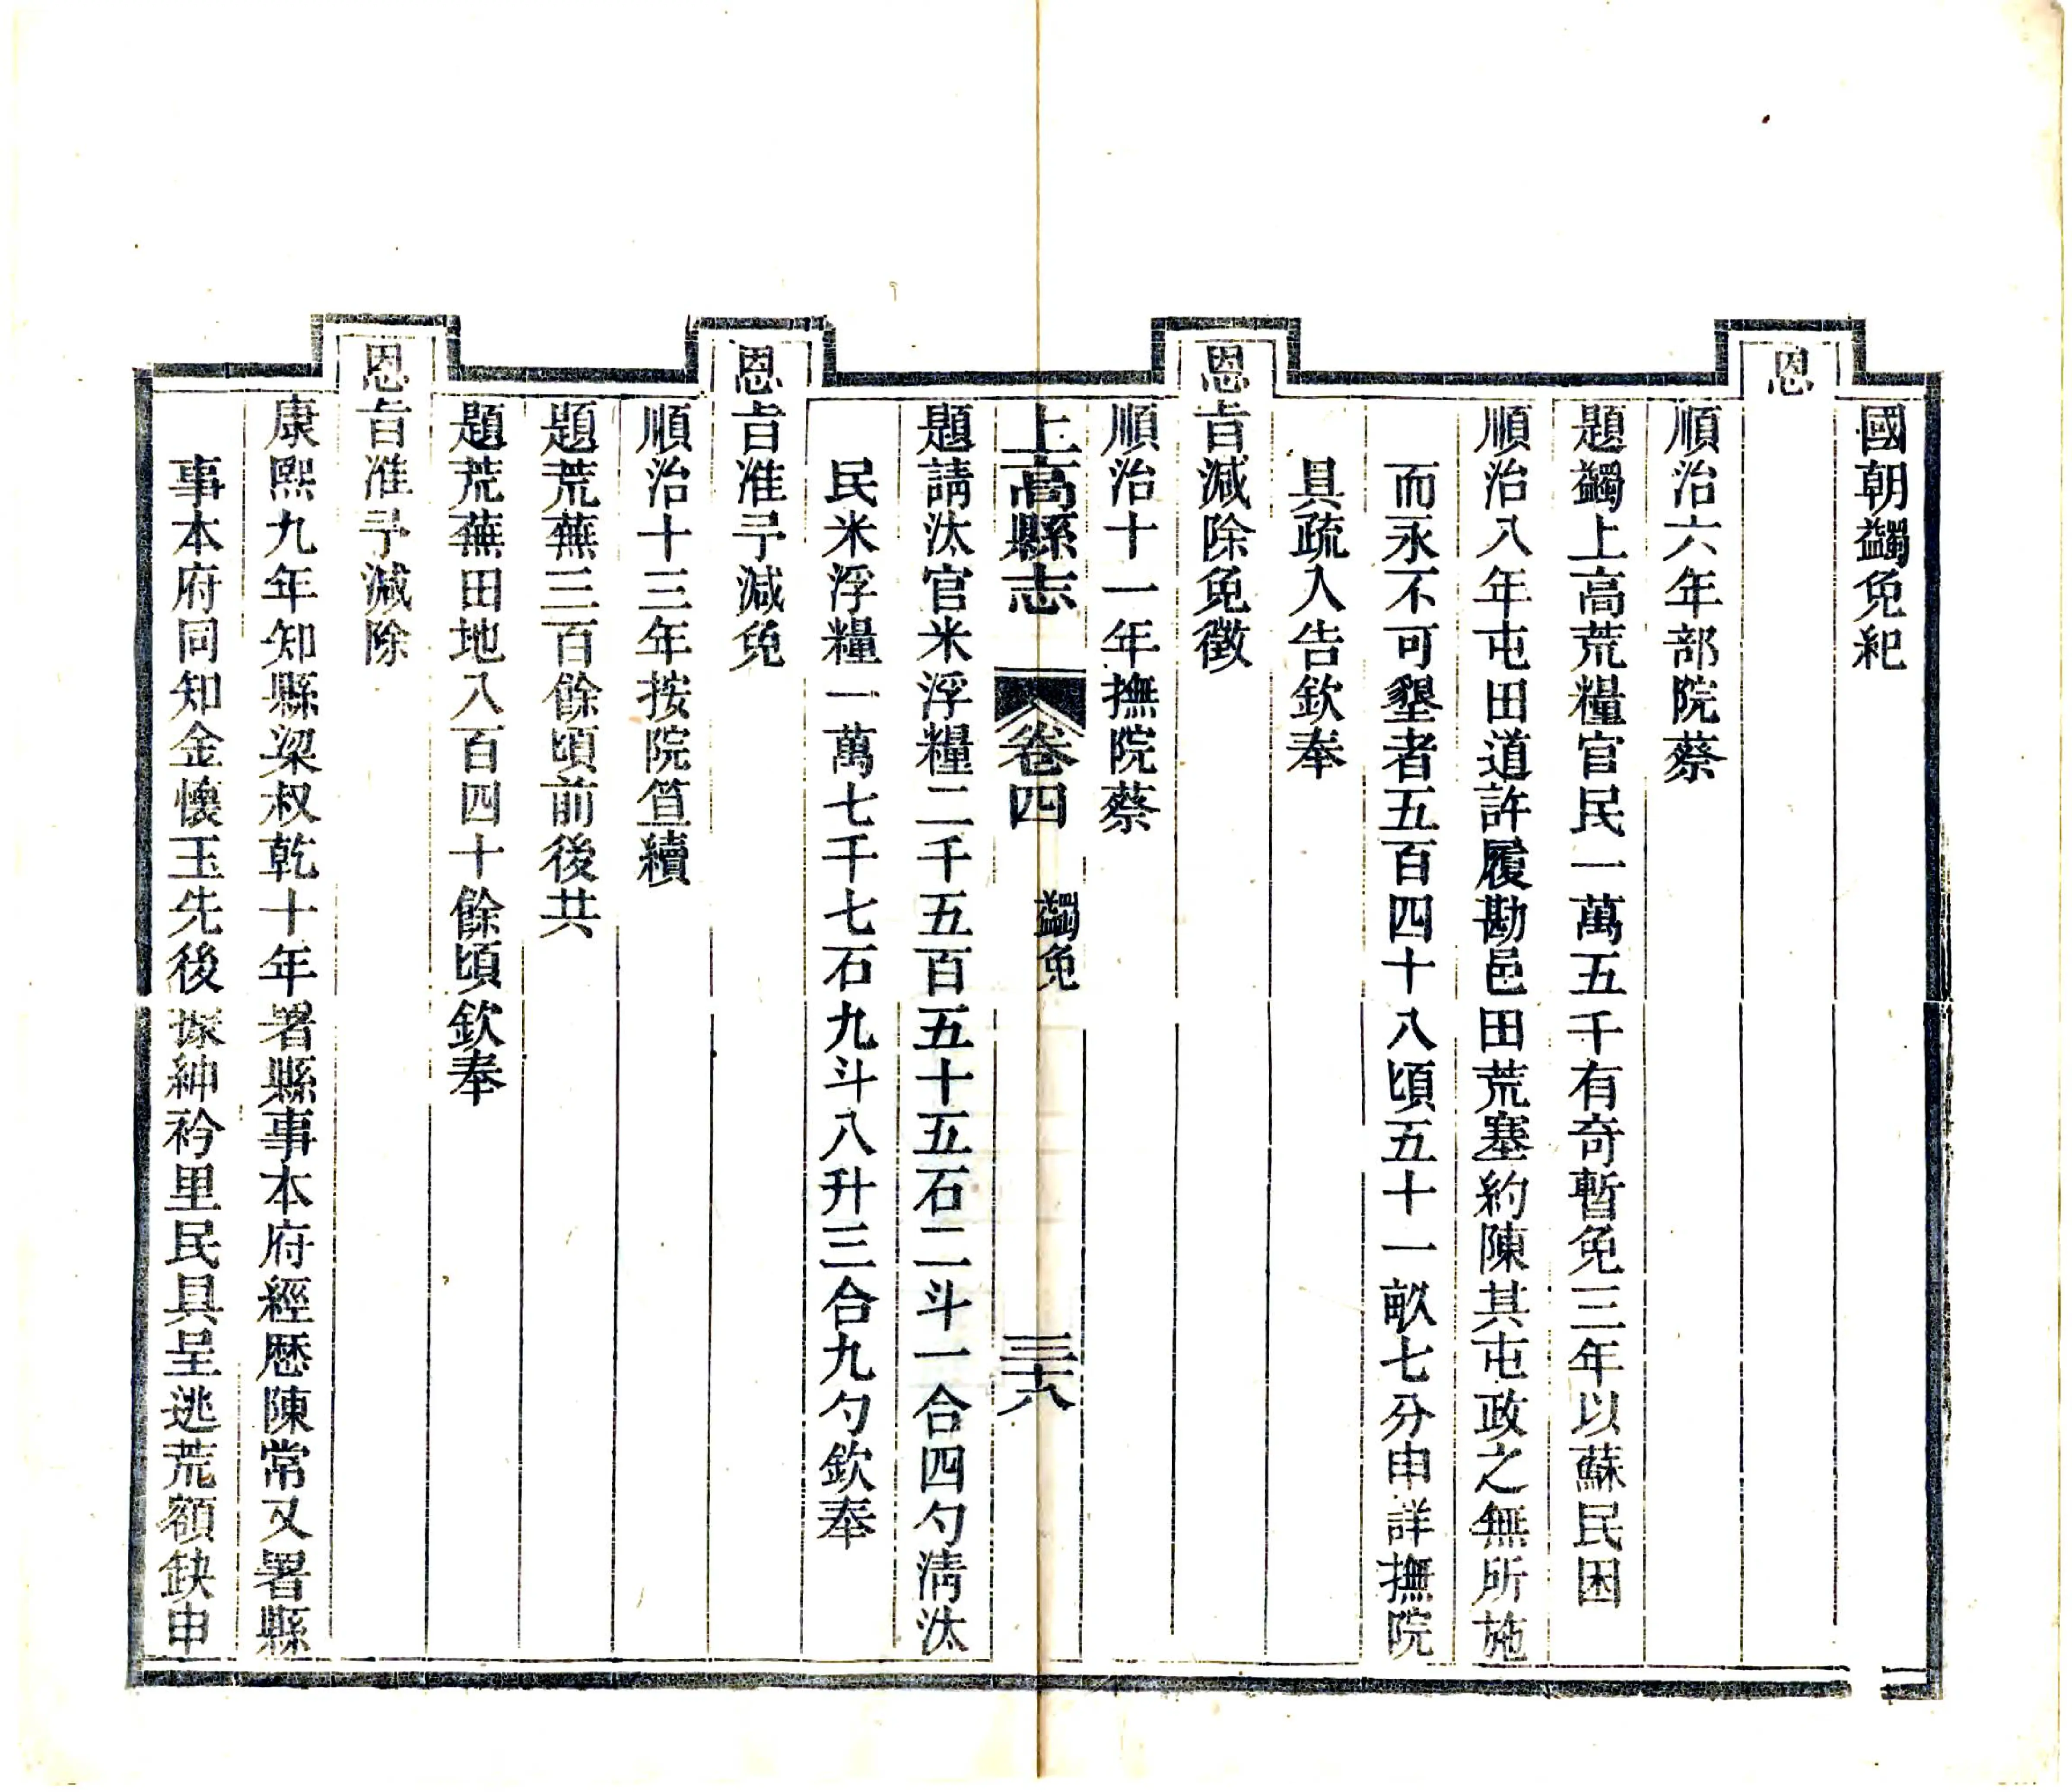 國朝蠲免紀
恩
順治六年部院蔡
題蠲上高荒糧官民一萬五千有奇暫免三年以蘇民困
順治八年屯田道許履勘邑田荒塞約陳其屯政之無所施
而永不可墾者五百四十八頃五十一畝七分申詳撫院
具疏入告欽奉
恩旨減除免徵
順治十一年撫院蔡
上高縣志 卷四 蠲免 三十八
題請汰官米浮糧二千五百五十五石二斗一合四勺清汰
民米浮糧一萬七千七石九斗八升三合九勺欽奉
恩旨准予減免
順治十三年按院笪續
題荒蕪三百餘頃前後共
題荒蕪田地八百四十餘頃欽奉
恩旨准予減除
康熙九年知縣梁叔乾十年署縣事本府經歷陳常又署縣
事本府同知金懷玉先後㨿紳衿里民具呈逃荒額缺申